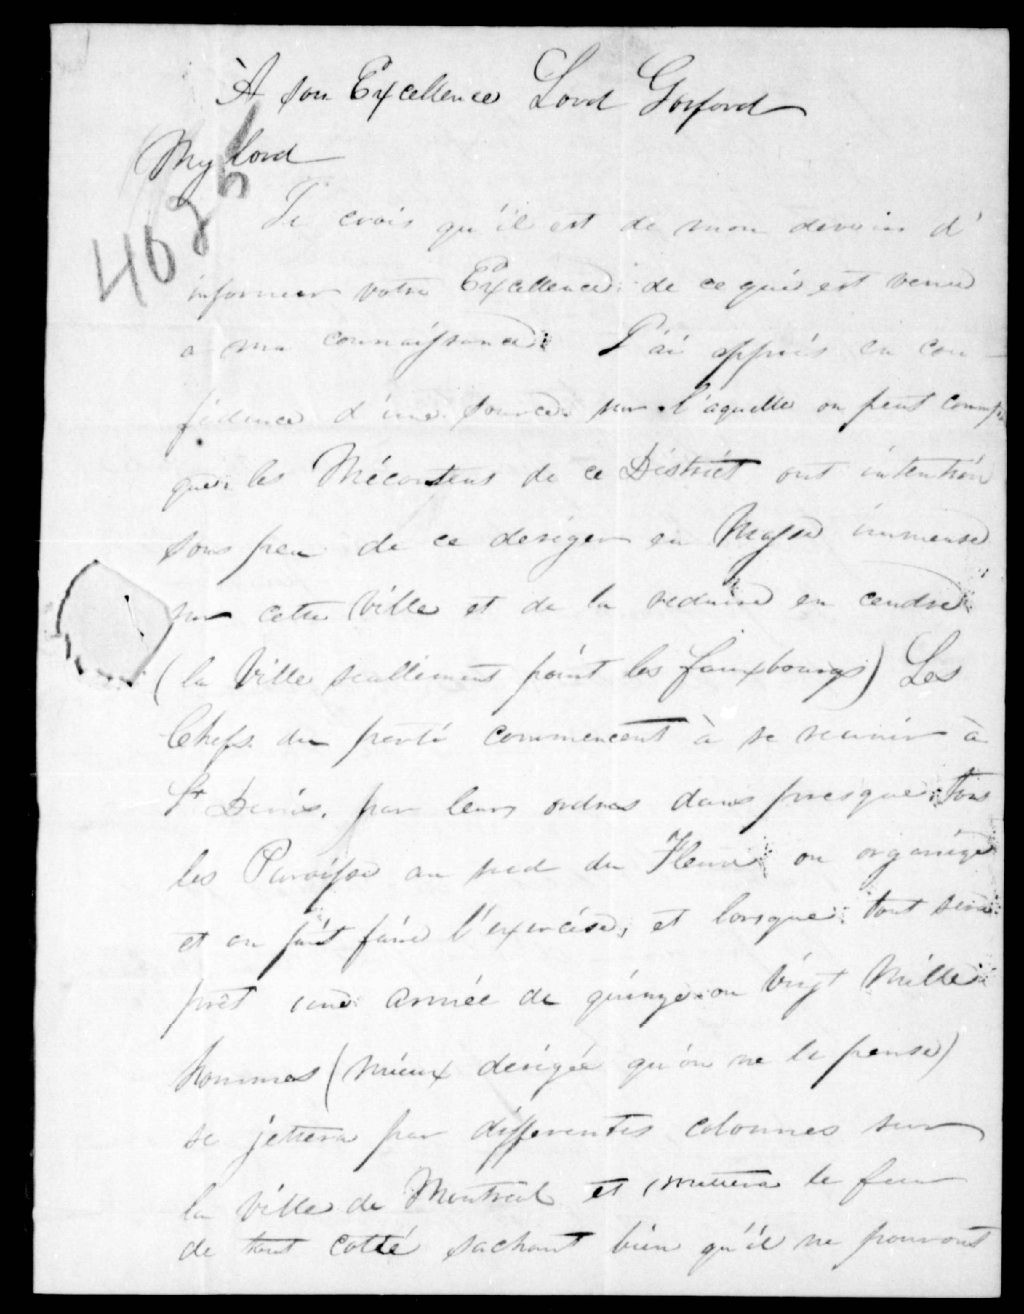 À son Excellence Lord Gosford
My lord
4625
Je crois qu'il est de mon devoir d'
informer votre Excellence de ce qui est venu
a ma connaissance. J'ai appris en con-
fidence d'une source sur l'aquelle on peut compter
que les Mécontens de ce District ont intention
sous peu de ce deriger en Masse immense
sur cette Ville et de la reduire en cendre
(la Ville seullement point les fauxbourgs) Les
Chefs du parti commencent à se reunir à
St Denis. par leurs ordres dans presque tous
les Paroisse au sud du Fleuve on organise
et on fait faire l'exercise, et lorsque tout sera
prêt une armée de quinze ou vingt Mille
hommes (mieux derigée qu'on ne le pense)
se jettera par differentes colonnes sur
la ville de Montreal et mettera le feu
de tout cotté sachant bien qu'il ne pourront